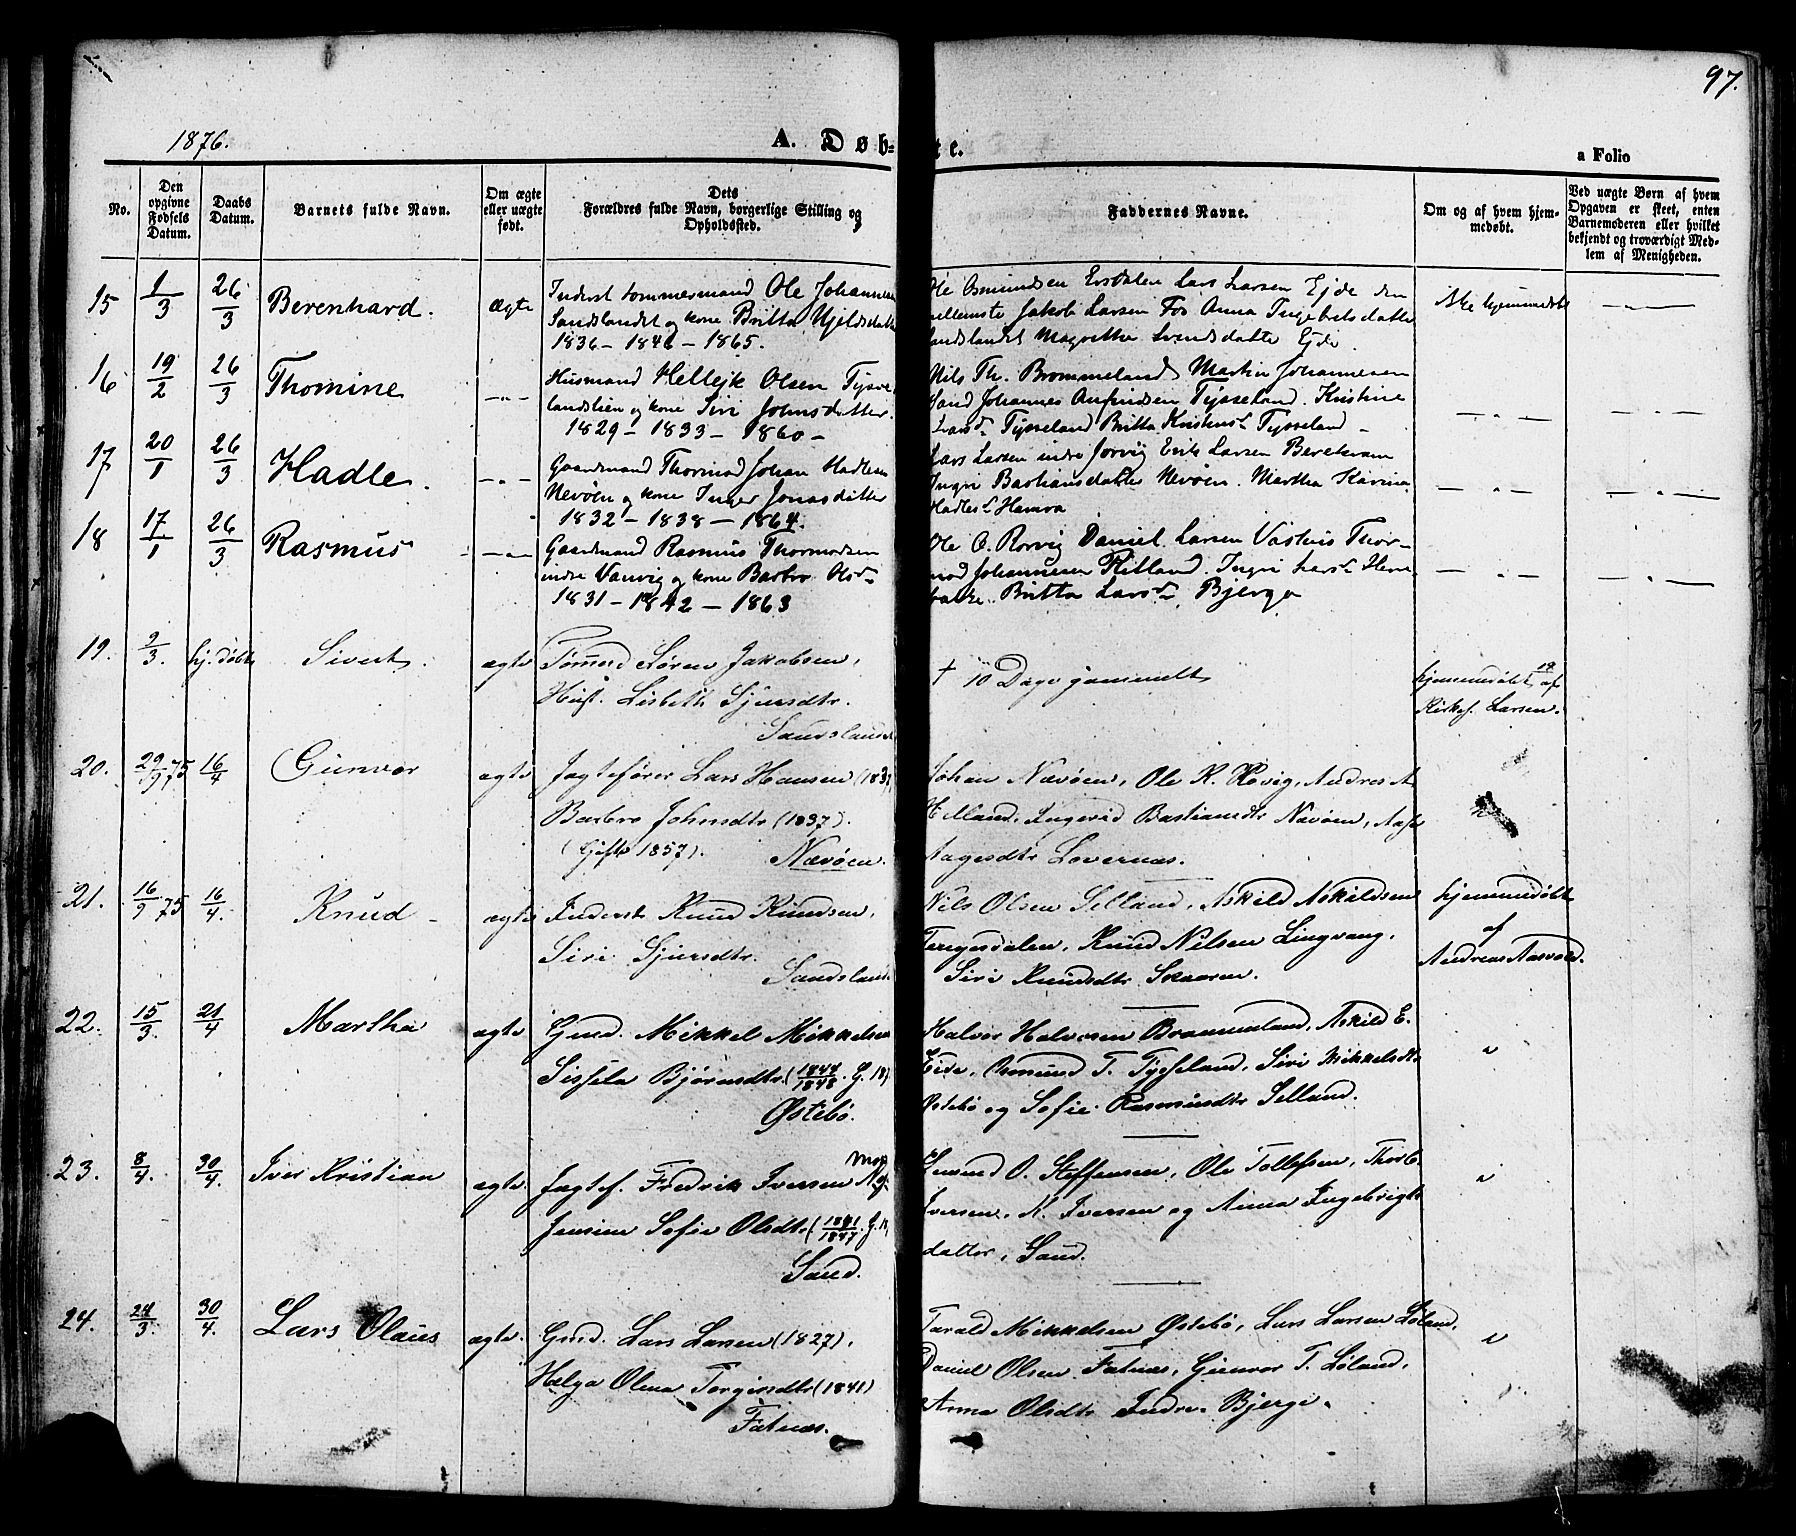 97.
1876.
A. Døb-te.
a Folio
No.
Den opgivne Fødsels Datum.
Daabs Datum.
Barnets fulde Navn.
Om ægte eller uægte født.
Dets Forældres fulde Navn, borgerlige Stilling og Opholdssted.
Faddernes Navne.
Om og af hvem hjemmedøbt.
Ved uægte Børn af hvem Opgaven er skeet, enten Barnemoderen eller hvilket bekjendt og troværdigt Medlem af Menigheden.
15 1/3 26/3 Berenhard. ægte
Inderst tømmermand Ole Johannesen
Sandslandet og kone Britta
1836 - 1842 - 1865.
Ole Osmundsen Ersdalen Lars Larsen Ejde den
Jakob Larsen Fos Anna Ingebretsdatter
Sandslandet Magrethe Svendsdatte Ejde.
ikke hjemmedøbt
16 19/2 26/3 Thomine -"-
Husmand Hellejk Olsen Tysse
landslien og kone Siri Johnsdatter.
1829 - 1833 - 1860 -
Nils Th. Brommeland Martin Johannesen
Sand Johannes Tysseland. Kristine
Larsd. Tysseland Britta Kristensd. Tysseland -
17 20/1 26/3 Hadle. -"-
Gaardmand Thormod Johan Hadlesen
Nevøen og kone Inger Jonasdatter
1832 - 1838 - 1864.
Lars Larsen indre Jorvig Erik Larsen Berekvam
Ingri Bastiansdatter Nevøen. Martha Karina
Hadlesd. Hamra
18 17/1 26/3 Rasmus -"-
Gaardmand Rasmus Thormodsen
indre Vanvig og kone Barbro Olsd.
1831 - 1842 - 1863
Ole O. Rørvig Daniel Larsen Vastvis Thor-
mod Johannesen Ritland. Ingri Larsd. Herre
bakke. Britta Larsd. Bjerga
19. 9/3. hj. døbt Sivert. ægte
Tømmermd Søren Jakobsen,
Hust. Lisbeth Sjursdtr.
Sandslandet
† 10 Dage gammelt
hjemmedøbt 19/ af
Kirkes. Larsen.
20. 29/9 75 16/4 Gunvor ægte
Jagtefører Lars Hansen (183
Barbro Johnsdtr (1837).
(Gifte 1857). Nævøen.
Johan Nævøen, Ole K. Hovig, Andreas A
Helland, Ingerid Bastiansdtr Nævøen, Aase
Aagesdtr Lovernæs.
21. 16/9 75 16/4. Knud - ægte
Inderst Knud Knudsen,
Siri Sjursdtr.
Sandslandet
Nils Olsen Selland, Askild Askildsen
Tergesdalen, Knud Nilsen Lingvang,
Siri Knudsdtr Skaaren.
hjemmedøbt
af
Andreas Aasvold.
22. 15/3. 21/4 Martha ægte
Gmd. Mikkel Mikkelsen
Sissela Bjørnsdtr (1844/1848. G. 18
Østebø.
Halvor Halvorsen Brommeland, Askild E.
Eide, Osmund T. Tysseland, Siri Mikkelsdtr
Østebø og Sofie Rasmusdtr Selland.
"
23. 8/4. 30/4 Iver Kristian ægte
Jagtef. Fredrik Iversen
Jensine Sofie Olsdtr (1841/1847. G. 18
Sand.
O. Steffensen, Ole Tollefsen, Thorb.
Iversen, N. Iversen og Anna Ingebrigts
datter, Sand.
"
24. 24/3. 30/4. Lars Olaus ægte.
Gmd. Lars Larsen (1827),
Helga Olena Torginsdtr (1841)
Fatnæs.
Tarald Mikkelsen Østebø, Lars Larsen Løland,
Daniel Olsen Fatnæs, Gunvor T. Løland,
Anna Olsdtr Indre Bjerge.
"